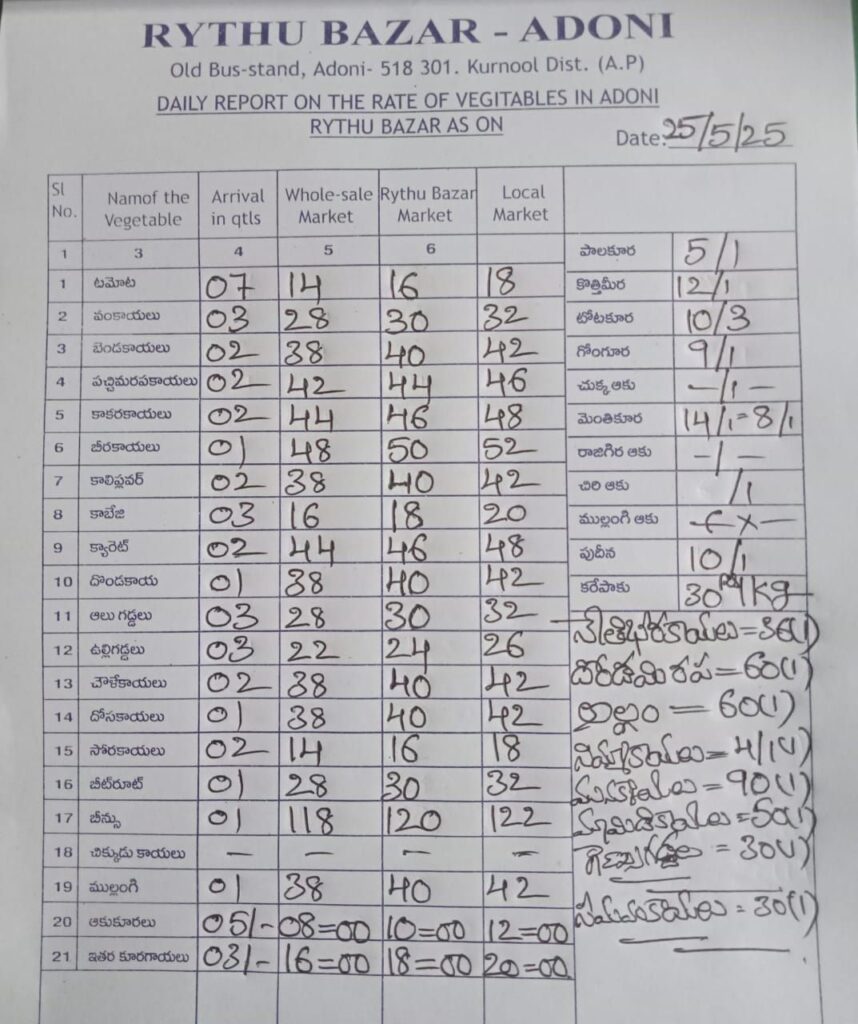 RYTHU BAZAR - ADONI
Old Bus-stand, Adoni- 518 301. Kurnool Dist. (A.P)
DAILY REPORT ON THE RATE OF VEGITABLES IN ADONI
RYTHU BAZAR AS ON
Date: 25/5/25
Sl No. Namof the Vegetable Arrival in qtls Whole-sale Market Rythu Bazar Market Local Market
1 3 4 5 6
1 టమోట 07 14 16 18
2 వంకాయలు 03 28 30 32
3 బెండకాయలు 02 38 40 42
4 పచ్చిమరపకాయలు 02 42 44 46
5 కాకరకాయలు 02 44 46 48
6 బీరకాయలు 01 48 50 52
7 కాలిఫ్లవర్ 02 38 40 42
8 కాబేజి 03 16 18 20
9 క్యారెట్ 02 44 46 48
10 దొండకాయ 01 38 40 42
11 ఆలు గడ్డలు 03 28 30 32
12 ఉల్లిగడ్డలు 03 22 24 26
13 చౌళేకాయలు 02 38 40 42
14 దోసకాయలు 01 38 40 42
15 సోరకాయలు 02 14 16 18
16 బీట్‌రూట్ 01 28 30 32
17 బీన్సు 01 118 120 122
18 చిక్కుడు కాయలు — — — —
19 ముల్లంగి 01 38 40 42
20 ఆకుకూరలు 05/- 08=00 10=00 12=00
21 ఇతర కూరగాయలు 03/- 16=00 18=00 20=00
పాలకూర 5/1
కొత్తిమీర 12/1
టోటకూర 10/3
గోంగూర 9/1
చుక్క ఆకు —/1 —
మెంతికూర 14/1=8/1
రాజగిర ఆకు —/—
చిరి ఆకు /1
ముల్లంగి ఆకు
పుదీన 10/1
కరేపాకు 30 1kg
=36(1)
=60(1)
అల్లం — 60(1)
నిమ్మకాయలు = 4/1(1)
మునక్కాయలు = 90(1)
మామిడికాయలు =50(1)
= 30(1)
= 30(1)